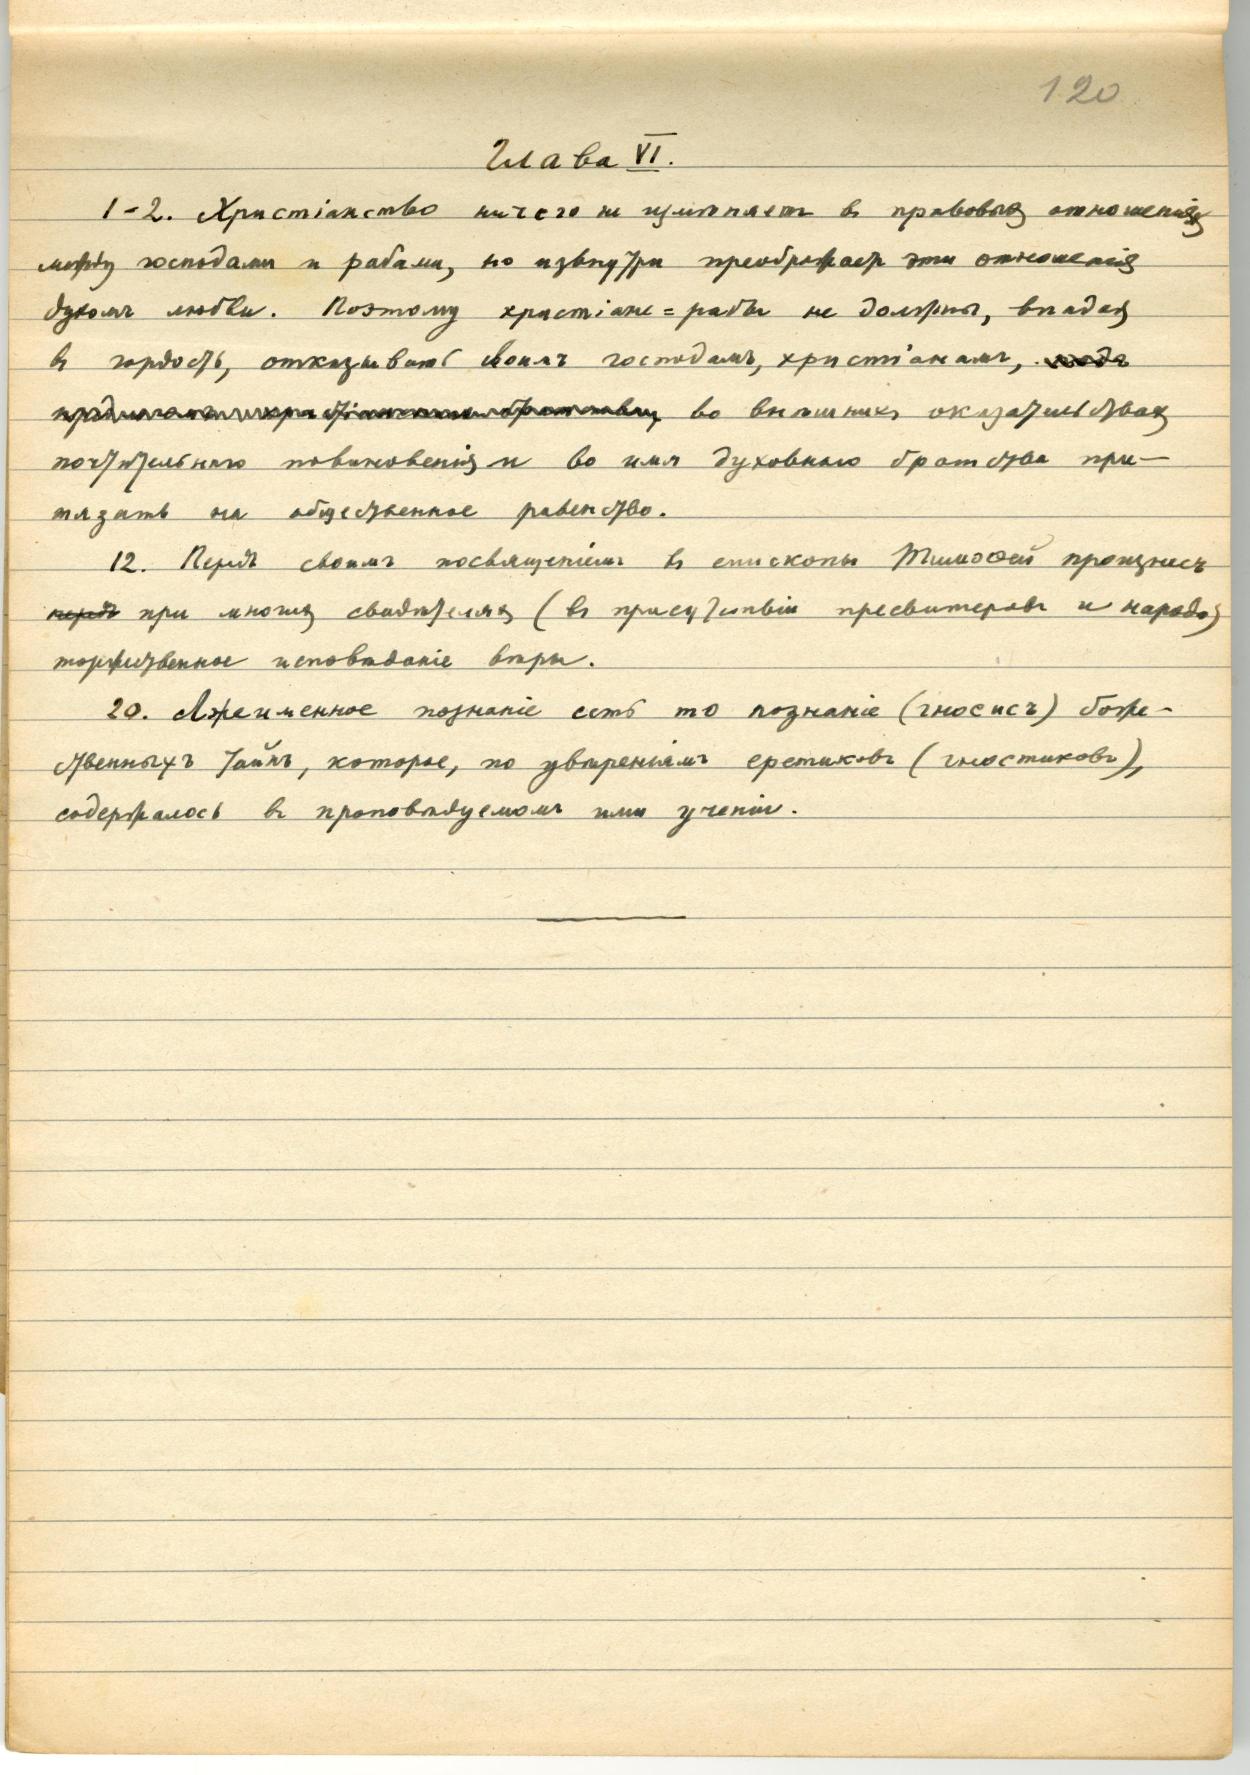 120
Глава VI.
1-2. Христіанство ничего не измѣняетъ въ правовыхъ отношеніяхъ
между господами и рабами, но извнутри преображаетъ эти отношенія
духомъ любви. Поэтому христіане=рабы не должны, впадая
въ гордость, отказывать своимъ господамъ, христіанамъ, подъ
предлогомъ христіанскаго братства, во внѣшнихъ оказательствахъ
почтительнаго повиновенія и во имя духовнаго братства при-
тязать на общественное равенство.
12. Передъ своимъ посвященіемъ въ епископы Тимоѳей произнесъ
передъ при многихъ свидѣтеляхъ (въ присутствіи пресвитеровъ и народа)
торжественное исповѣданіе вѣры.
20. Лжеименное познаніе есть то познаніе (гносисъ) боже-
ственныхъ тайнъ, которое, по увѣреніямъ еретиковъ (гностиковъ),
содержалось въ проповѣдуемомъ ими ученіи.